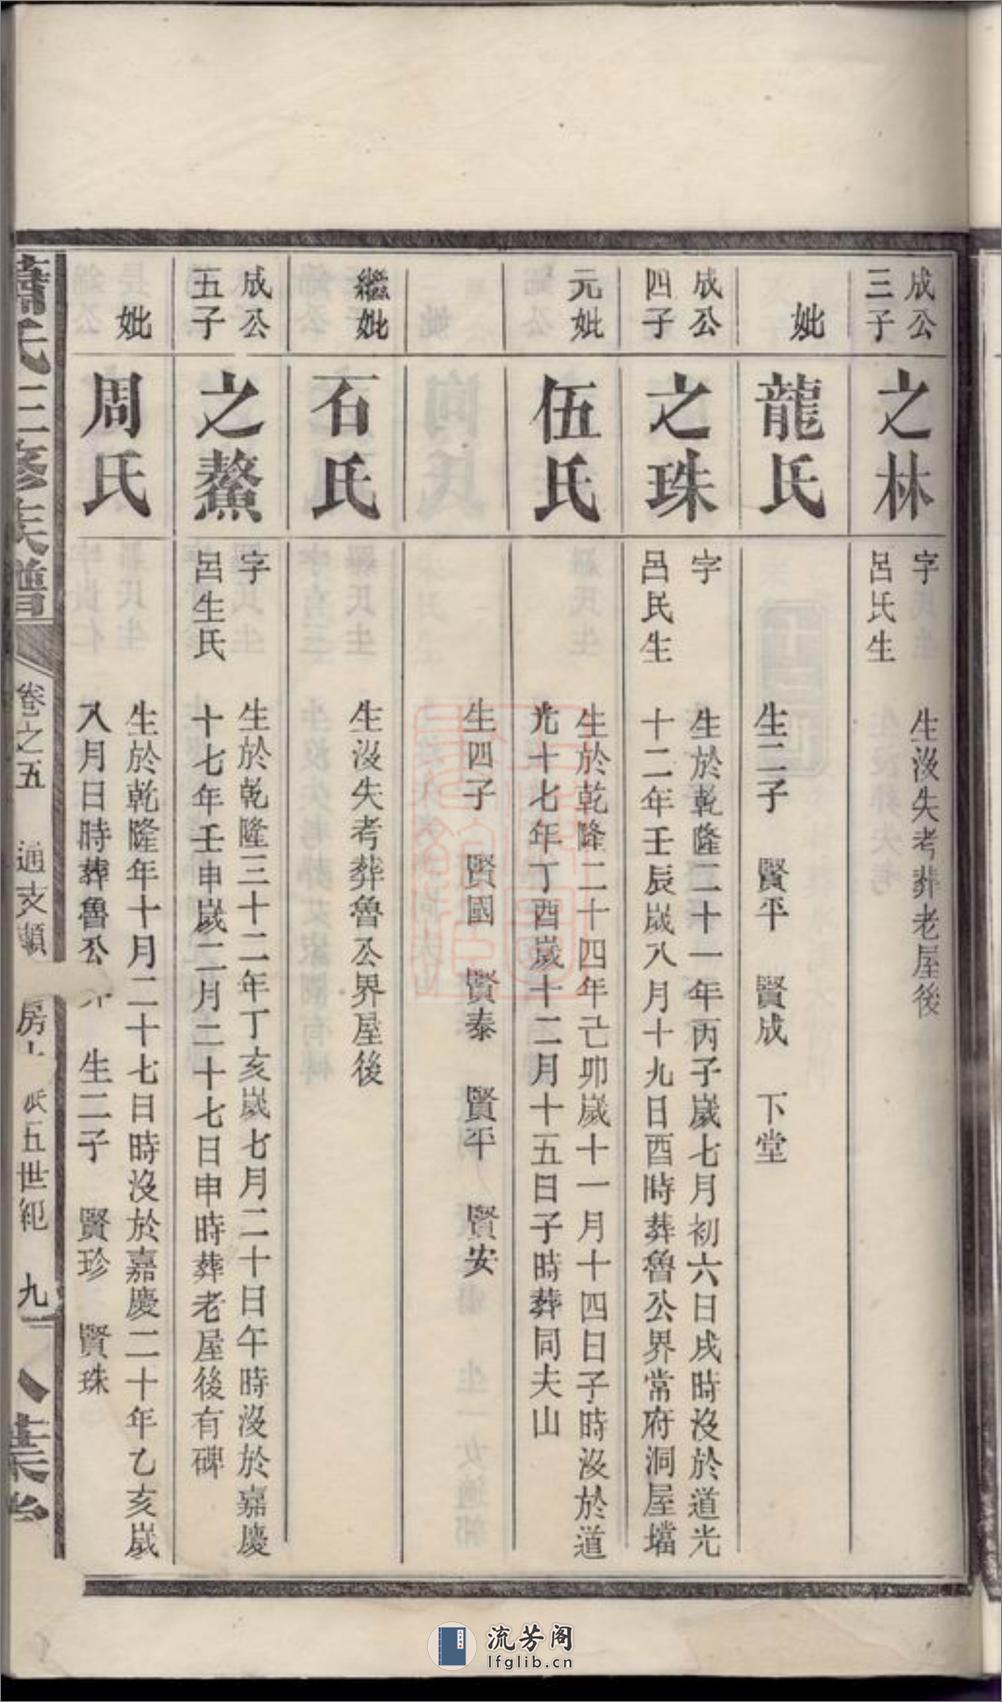 成公
三子
之林
字
呂氏生
生沒失考葬老屋後
妣
龍氏
生二子 賢平 賢成 下堂
成公
四子
之珠
字
呂民生
生於乾隆二十一年丙子歲七月初六日戌時沒於道光
十二年壬辰歲八月十九日酉時葬魯公界常府洞屋壋
元妣
伍氏
生於乾隆二十四年己卯歲十一月十四日子時沒於道
光十七年丁酉歲十二月十五日子時葬同夫山
生四子 賢國 賢泰 賢平 賢安
繼妣
石氏
生沒失考葬魯公界屋後
成公
五子
之鰲
字
呂生氏
生於乾隆三十二年丁亥歲七月二十日午時沒於嘉慶
十七年壬申歲二月二十七日申時葬老屋後有碑
妣
周氏
生於乾隆年十月二十七日時沒於嘉慶二十年乙亥歲
八月日時葬魯公 生二子 賢珍 賢珠
蕭氏三修族譜
卷之五 通支 房 五世紀 九
流芳阁
lfglib.cn